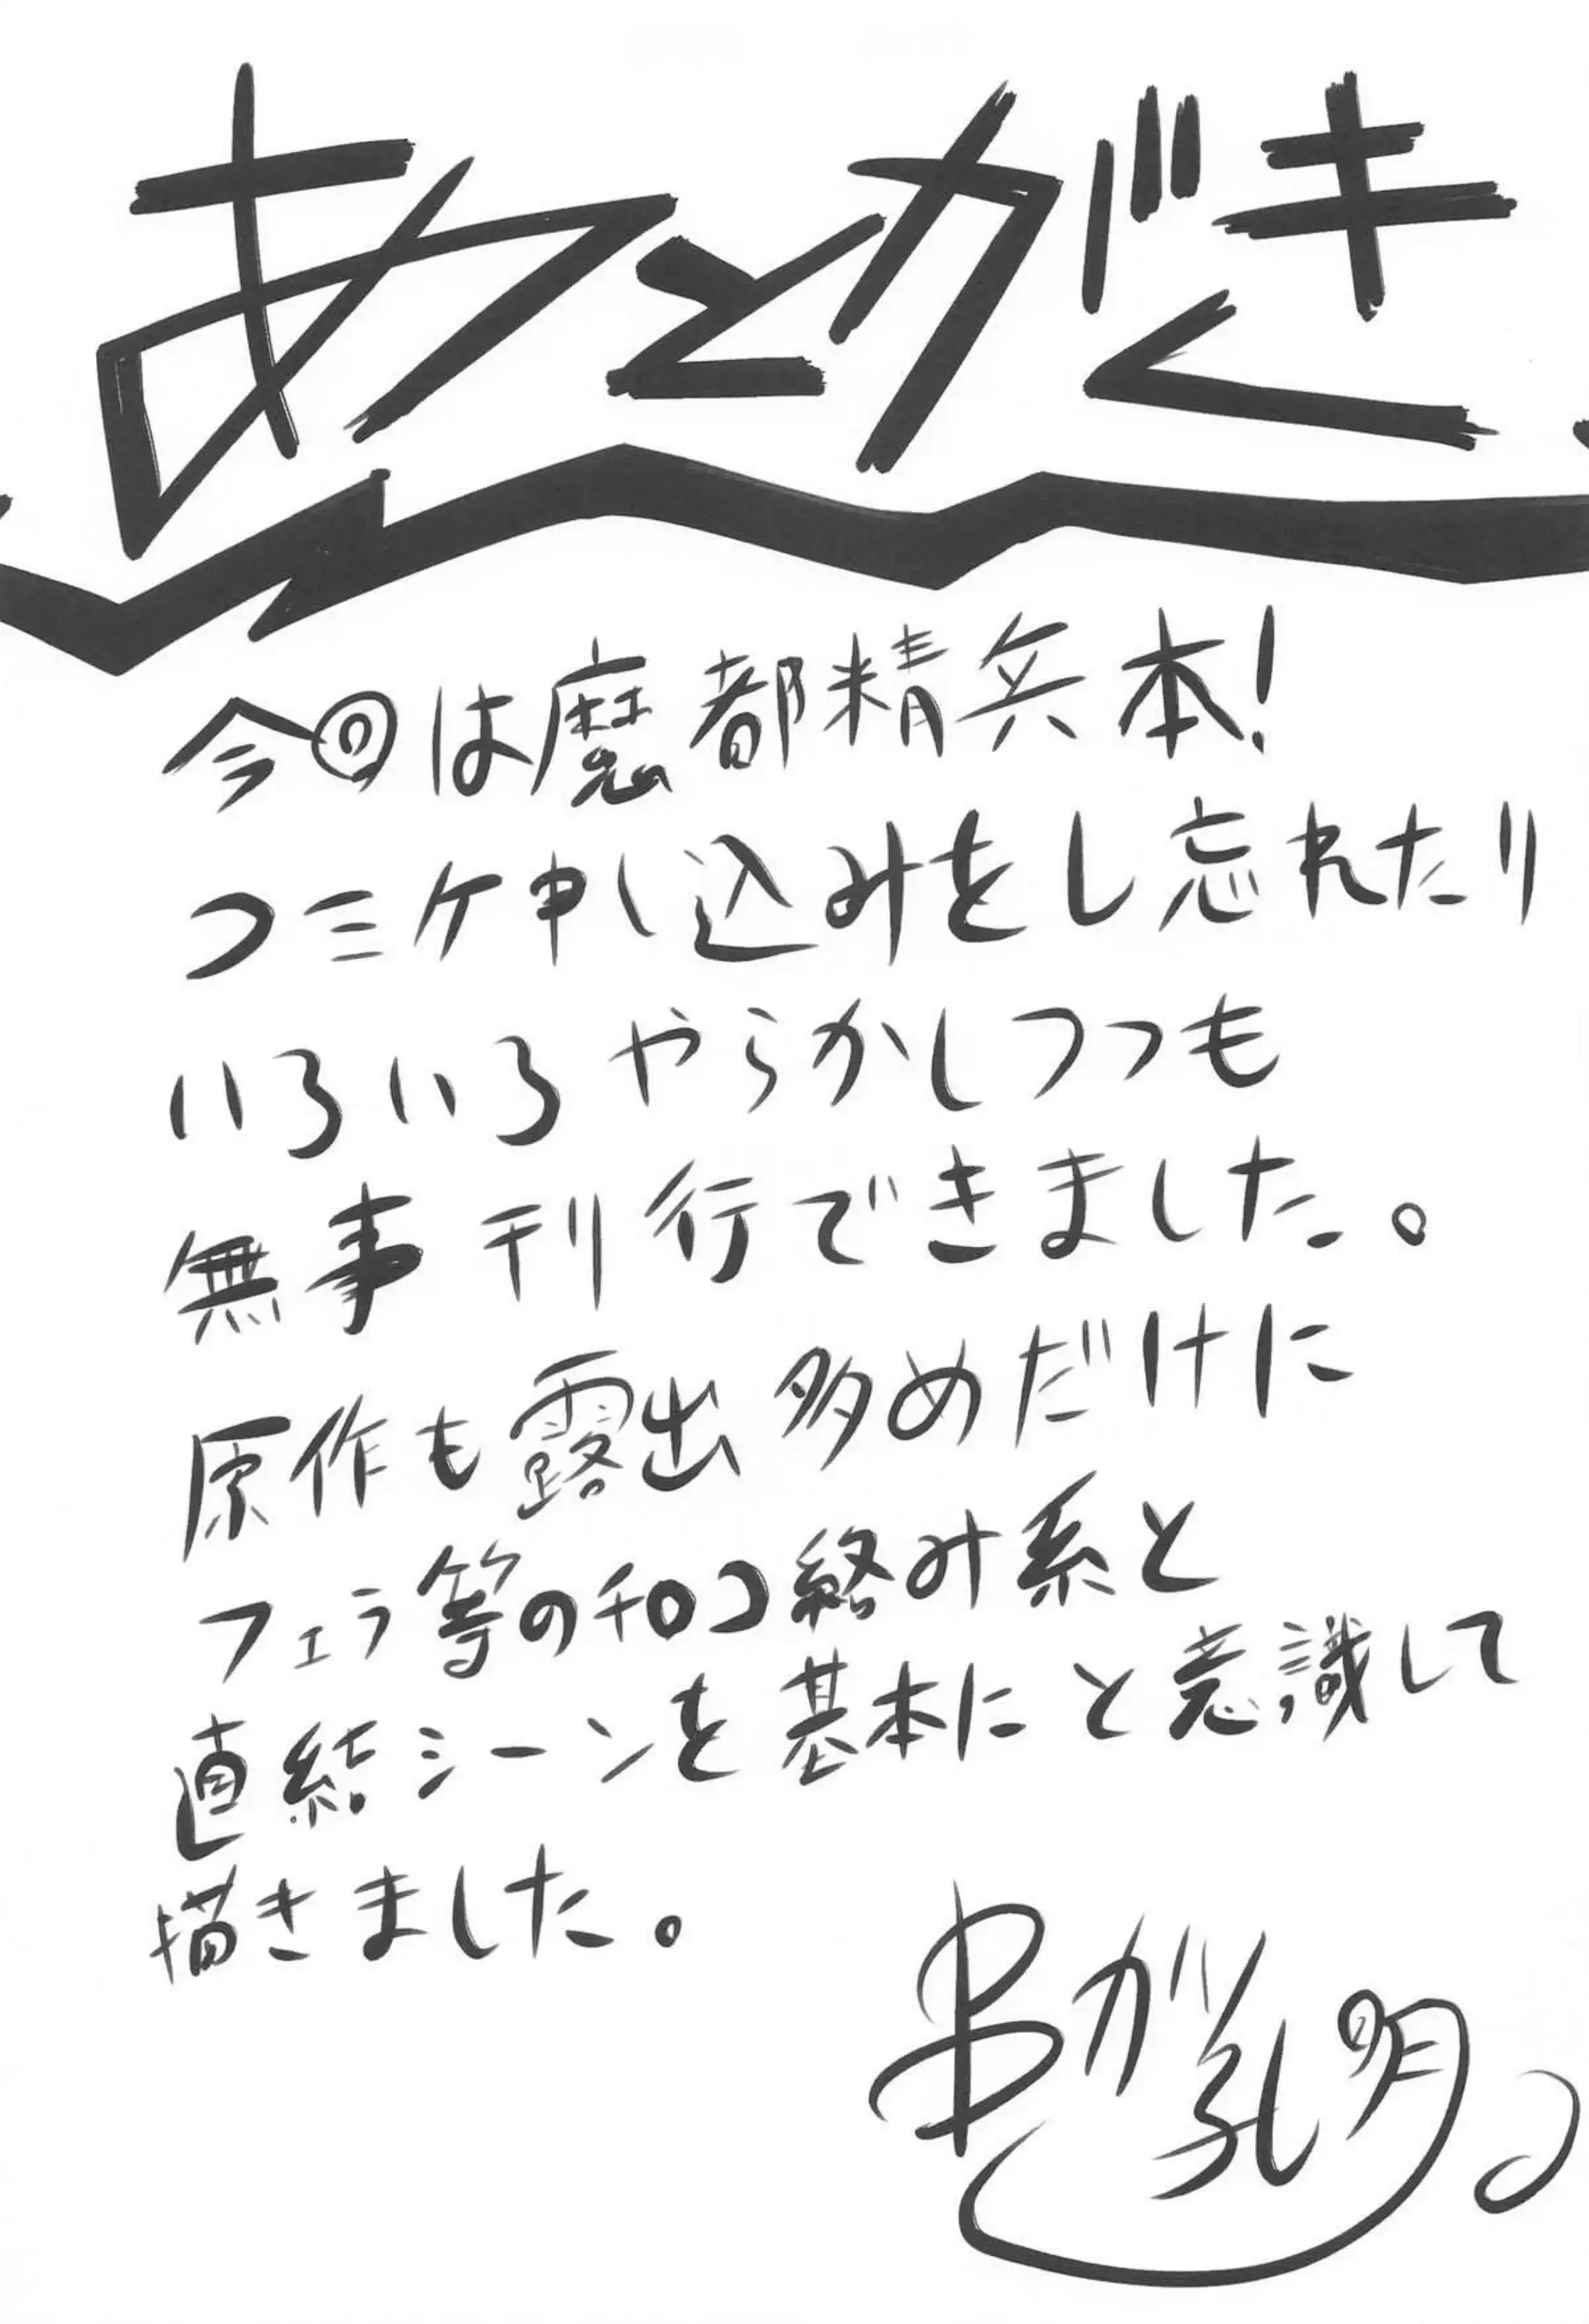 あとがき
今回は魔都精兵本!
コミケ申し込みをし忘れたり
いろいろやらかしつつも
無事刊行できました。
原作も露出多めだけに
フェラ等のチ○コ絡み系と
直結シーンを基本にと意識して
描きました。
串が乳明。